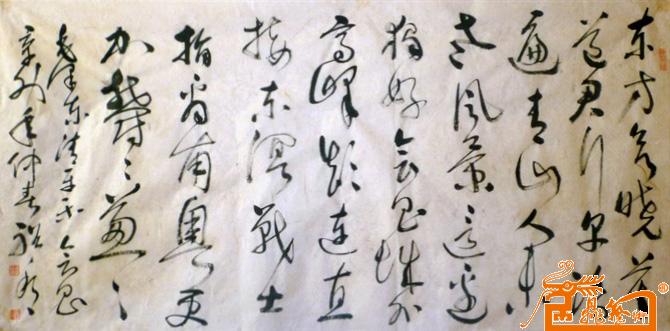 东方欲晓莫
道君行早踏
遍青山人未
老风景这边
独好会昌城外
高峰颠连直
接东溟战士
指看南粤更
加郁々葱々
毛泽东清平乐会昌
辛卯年仲春